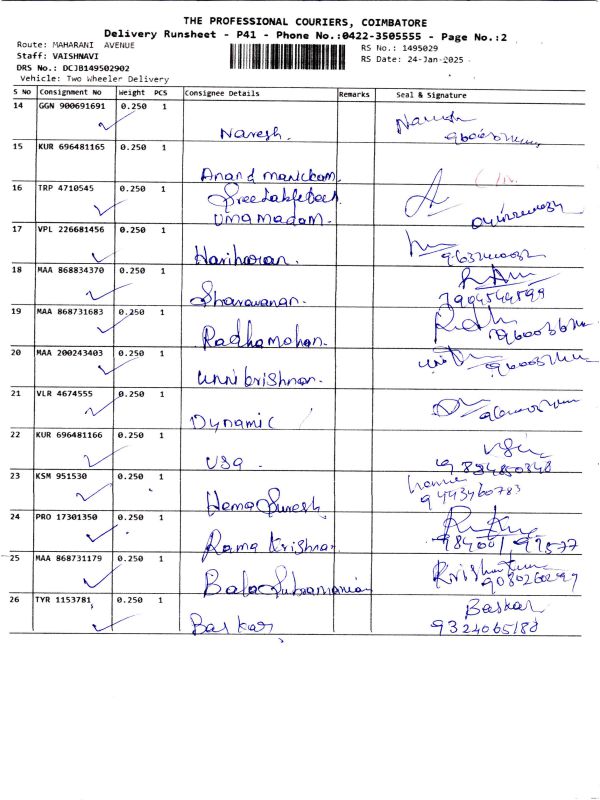 THE PROFESSIONAL COURIERS, COIMBATORE
Delivery Runsheet - P41 - Phone No.:0422-3505555 - Page No.:2
Route: MAHARANI AVENUE
Staff: VAISHNAVI
DRS No.: DCJB149502902
Vehicle: Two Wheeler Delivery
RS No.: 1495029
RS Date: 24-Jan-2025
S No Consignment No Weight PCS Consignee Details Remarks Seal & Signature
14 GGN 900691691 0.250 1
Naresh. Naresh
15 KUR 696481165 0.250 1
Anand manickam.
16 TRP 4710545 0.250 1
Uma madam.
17 VPL 226681456 0.250 1
Hariharan.
18 MAA 868834370 0.250 1
Sharavanan. 7904544599
19 MAA 868731683 0.250 1
Radhamohan.
20 MAA 200243403 0.250 1
Unni krishnan.
21 VLR 4674555 0.250 1
Dynamic
22 KUR 696481166 0.250 1
USA. 9894850348
23 KSM 951530 0.250 1
Hema Suresh 9443460783
24 PRO 17301350 0.250 1
Rama Krishnan
25 MAA 868731179 0.250 1
Bala Subramanian 9080260299
26 TYR 1153781 0.250 1
Baskar Baskar
9324065188